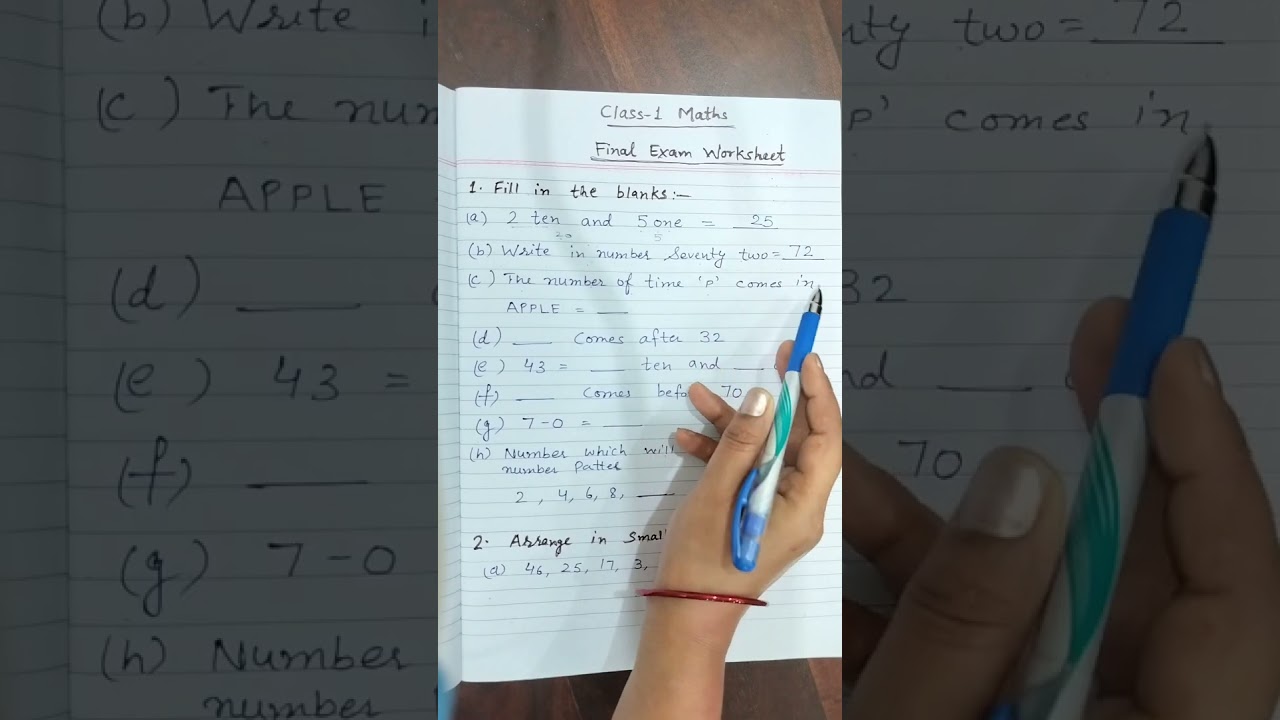 Class-1 Maths
Final Exam Worksheet
1. Fill in the blanks:-
(a) 2 ten and 5 one = 25
20 5
(b) Write in number Seventy two = 72
(c) The number of time 'P' comes in
APPLE = ___
(d) ___ Comes after 32
(e) 43 = ___ ten and ___
(f) ___ Comes 70
(g) 7-0 = ___
(h) Number which will
number Patter
2, 4, 6, 8, ___
2. Arrange in
(a) 46, 25, 17, 3,